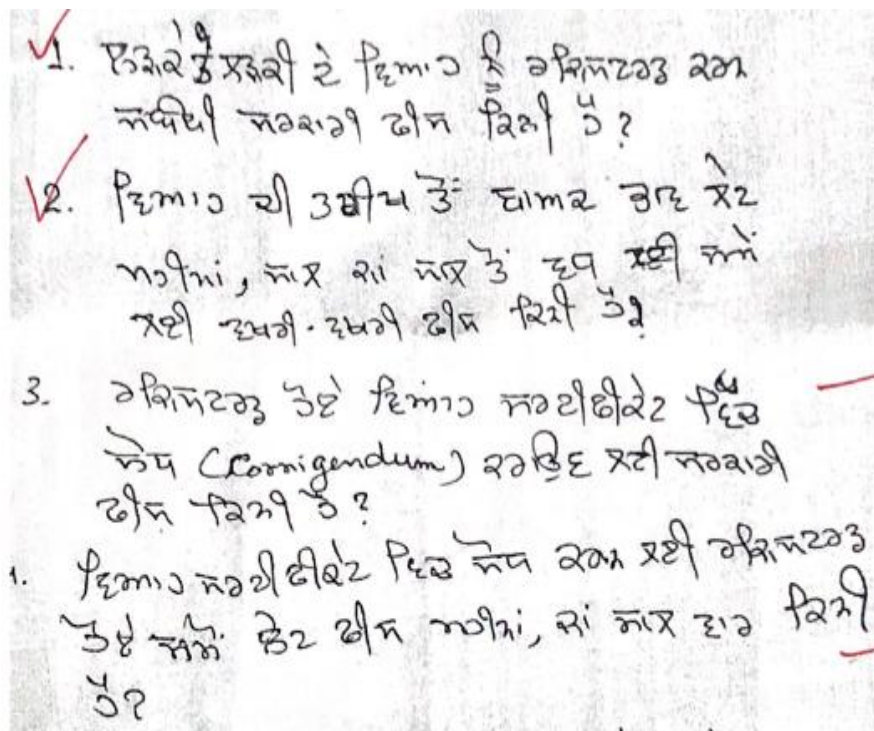 1. ਲੜਕੇ ਤੇ ਲੜਕੀ ਦੇ ਵਿਆਹ ਨੂੰ ਰਜਿਸਟਰਡ ਕਰਨ
ਸੰਬੰਧੀ ਸਰਕਾਰੀ ਫੀਸ ਕਿੰਨੀ ਹੈ?
2. ਵਿਆਹ ਦੀ ਤਰੀਖ ਤੋਂ ਭਾਵ ਲੇਟ
ਮਹੀਨਾਂ, ਸਾਲ ਜਾਂ ਸਾਲ ਤੋਂ ਵਧ ਸਮੇਂ
ਲਈ ਵਖਰੀ-ਵਖਰੀ ਫੀਸ ਕਿਨੀ ਹੈ?
3. ਰਜਿਸਟਰਡ ਹੋਏ ਵਿਆਹ ਸਰਟੀਫੀਕੇਟ ਵਿੱਚ
ਸੋਧ (Corrigendum) ਕਰਾਉਣ ਲਈ ਸਰਕਾਰੀ
ਫੀਸ ਕਿਨੀ ਹੈ?
ਵਿਆਹ ਸਰਟੀਫੀਕੇਟ ਵਿਚ ਸੋਧ ਕਰਨ ਲਈ ਰਜਿਸਟਰਡ
ਹੋਏ ਸਮੇਂ ਲੇਟ ਫੀਸ ਮਹੀਨਾਂ, ਜਾਂ ਸਾਲ ਵਾਰ ਕਿਨੀ
ਹੈ?